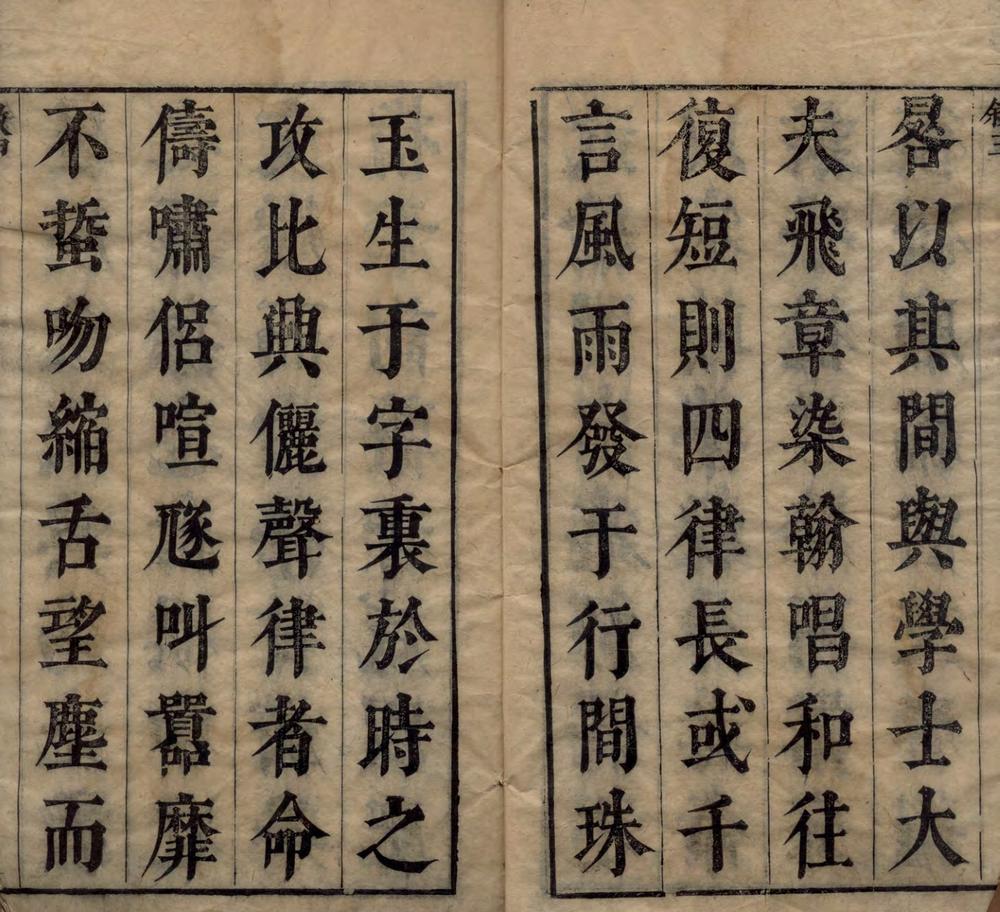 畧以其間與學士大
夫飛章染翰唱和往
復短則四律長或千
言風雨發于行間珠
玉生于字裏於時之
攻比興儷聲律者命
儔嘯侶喧豗叫嚣靡
不蜇吻縮舌望塵而